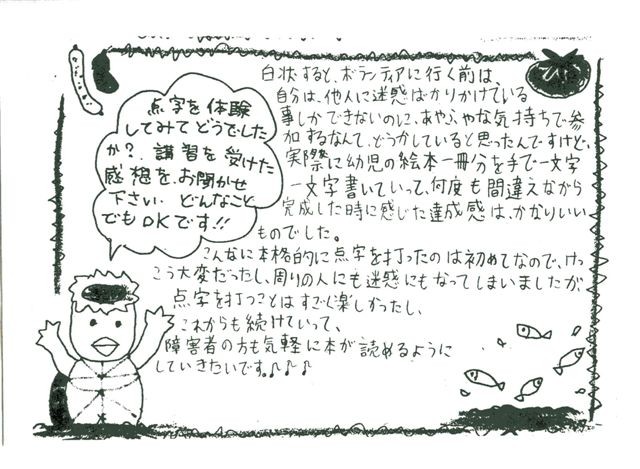 点字を体験
してみてどうでした
か?講習を受けた
感想をお聞かせ
下さい.どんなこと
でもOKです!!
白状すると、ボランティアに行く前は、
自分は、他人に迷惑ばかりかけている
事しかできないのに、あやふやな気持ちで参
加するなんて、どうかしていると思ったんですけど、
実際に幼児の絵本一冊分を手で一文字
一文字書いていって、何度も間違えながら
完成した時に感じた達成感は、かなりいい
ものでした。
こんなに本格的に点字を打ったのは初めてなので、けっ
こう大変だったし、周りの人にも迷惑にもなってしまいましたが、
点字を打つことはすごく楽しかったし、
これからも続けていって、
障害者の方も気軽に本が読めるように
していきたいです。♪♪♪